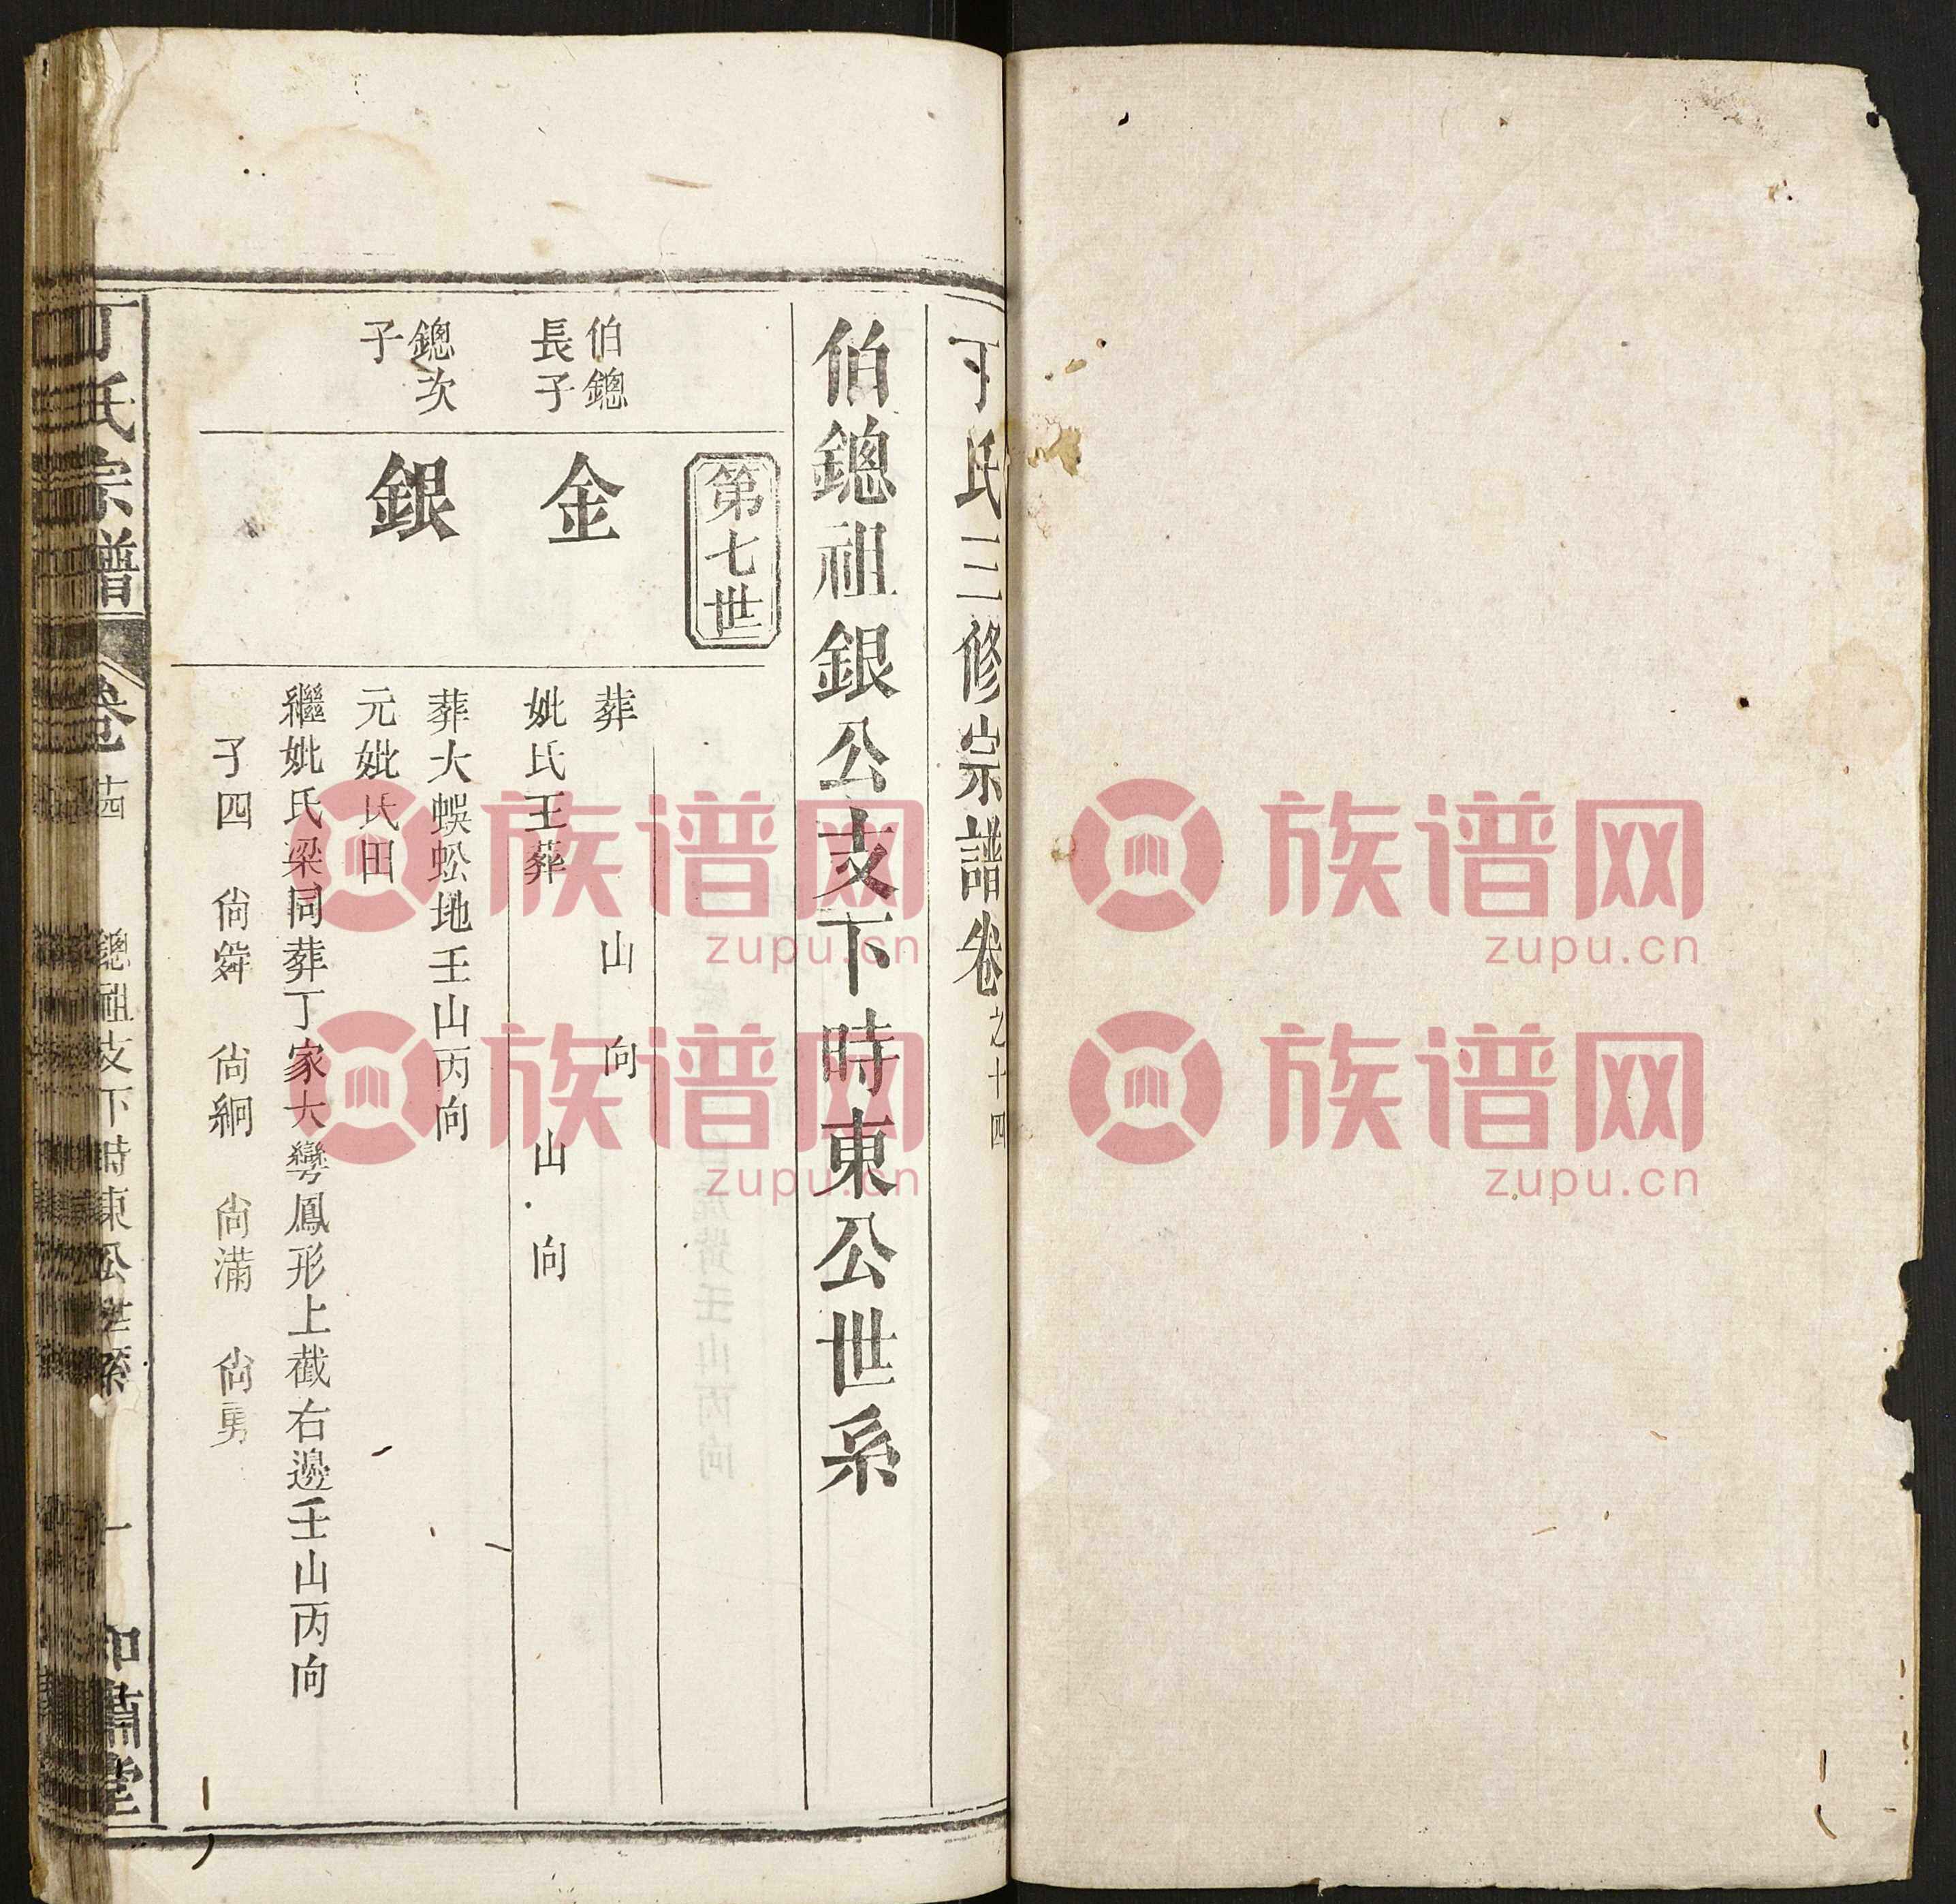 丁氏三修宗譜卷之十四
伯鏓祖銀公支下時東公世系
第七世
伯鏓
長子
金
葬 山 向
妣氏王葬 山 向
鏓次
子
銀
葬大蜈蚣地壬山丙向
元妣氏田
繼妣氏梁同葬丁家大灣鳳形上截右邊壬山丙向
子四 尙舜 尙絅 尙滿 尙勇
丁氏宗譜 卷 十四 鏓祖支下時東公世系 一
族谱网
zupu.cn
族谱网
zupu.cn
族谱网
zupu.cn
族谱网
zupu.cn